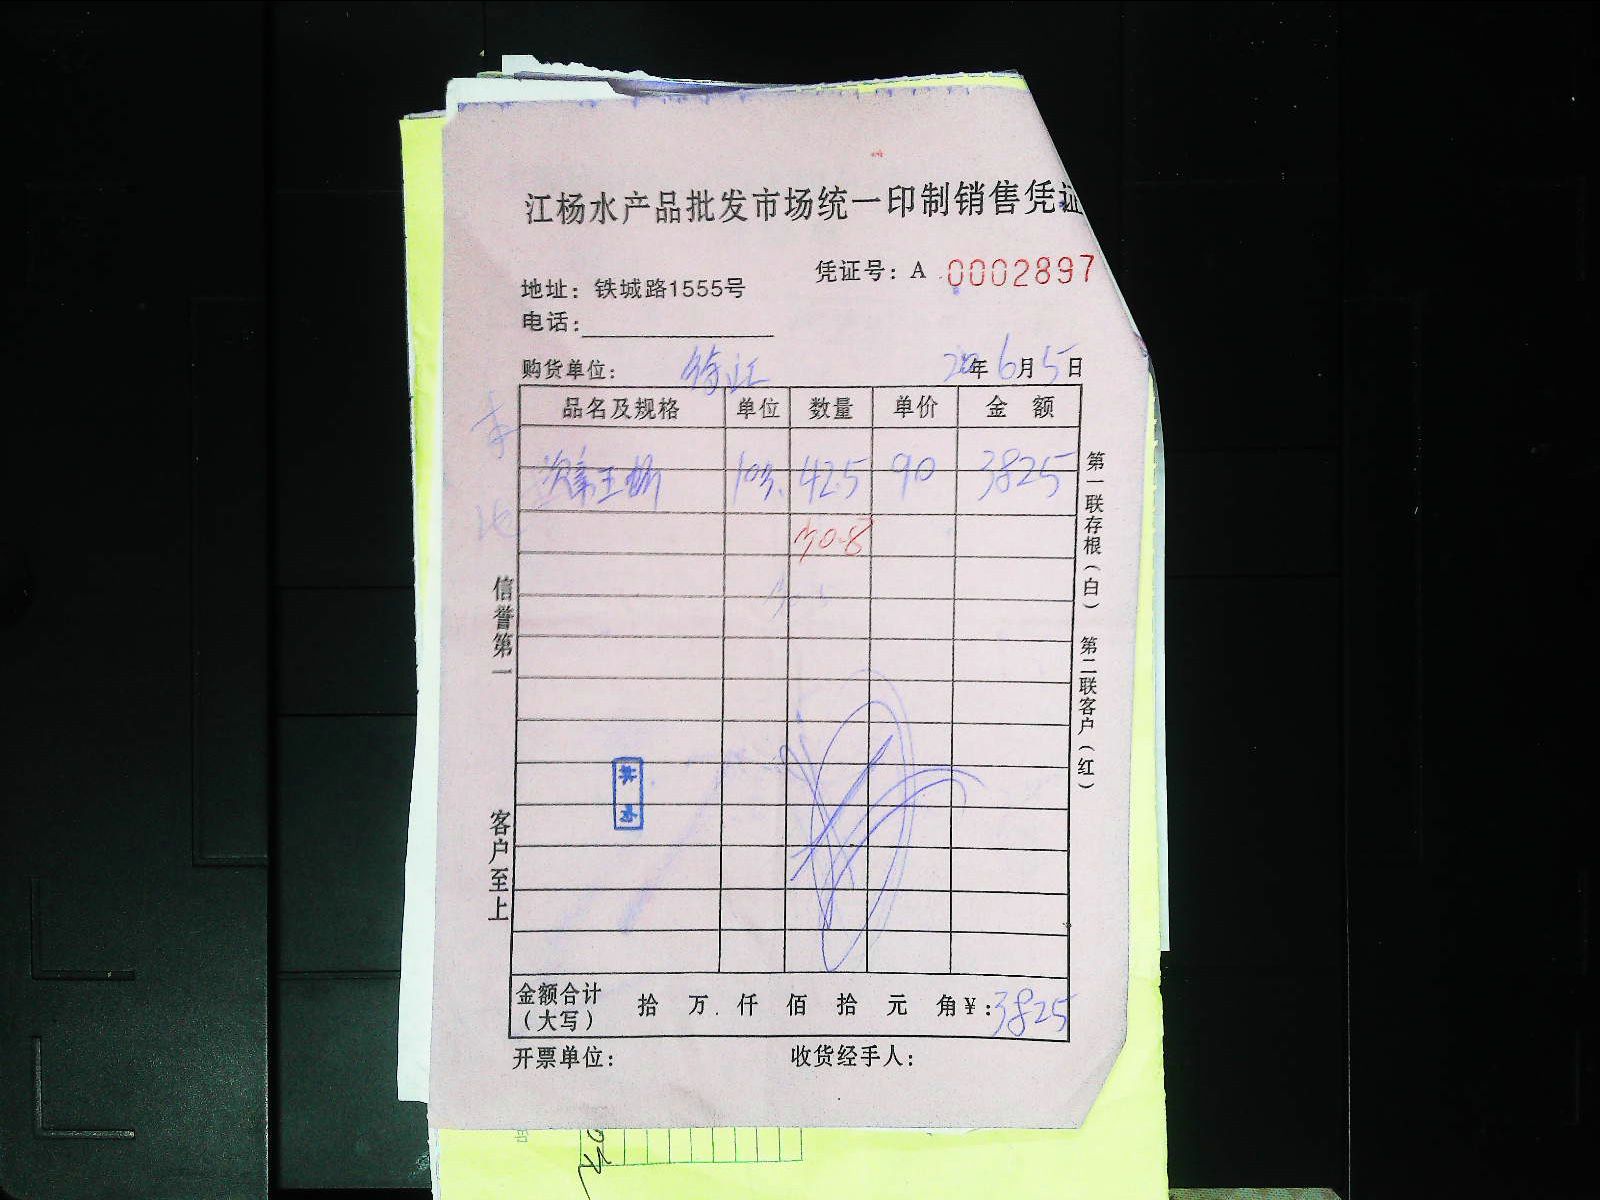 江杨水产品批发市场统一印制销售凭证
凭证号：A 0002897
地址：铁城路1555号
电话：
购货单位： 徐江 年 6月5日
品名及规格 单位 数量 单价 金 额
42.5 90 3825
30.8
第一联存根（白） 第二联客户（红）
信誉第一
客户至上
金额合计（大写） 拾 万 仟 佰 拾 元 角 ¥：3825
开票单位： 收货经手人：